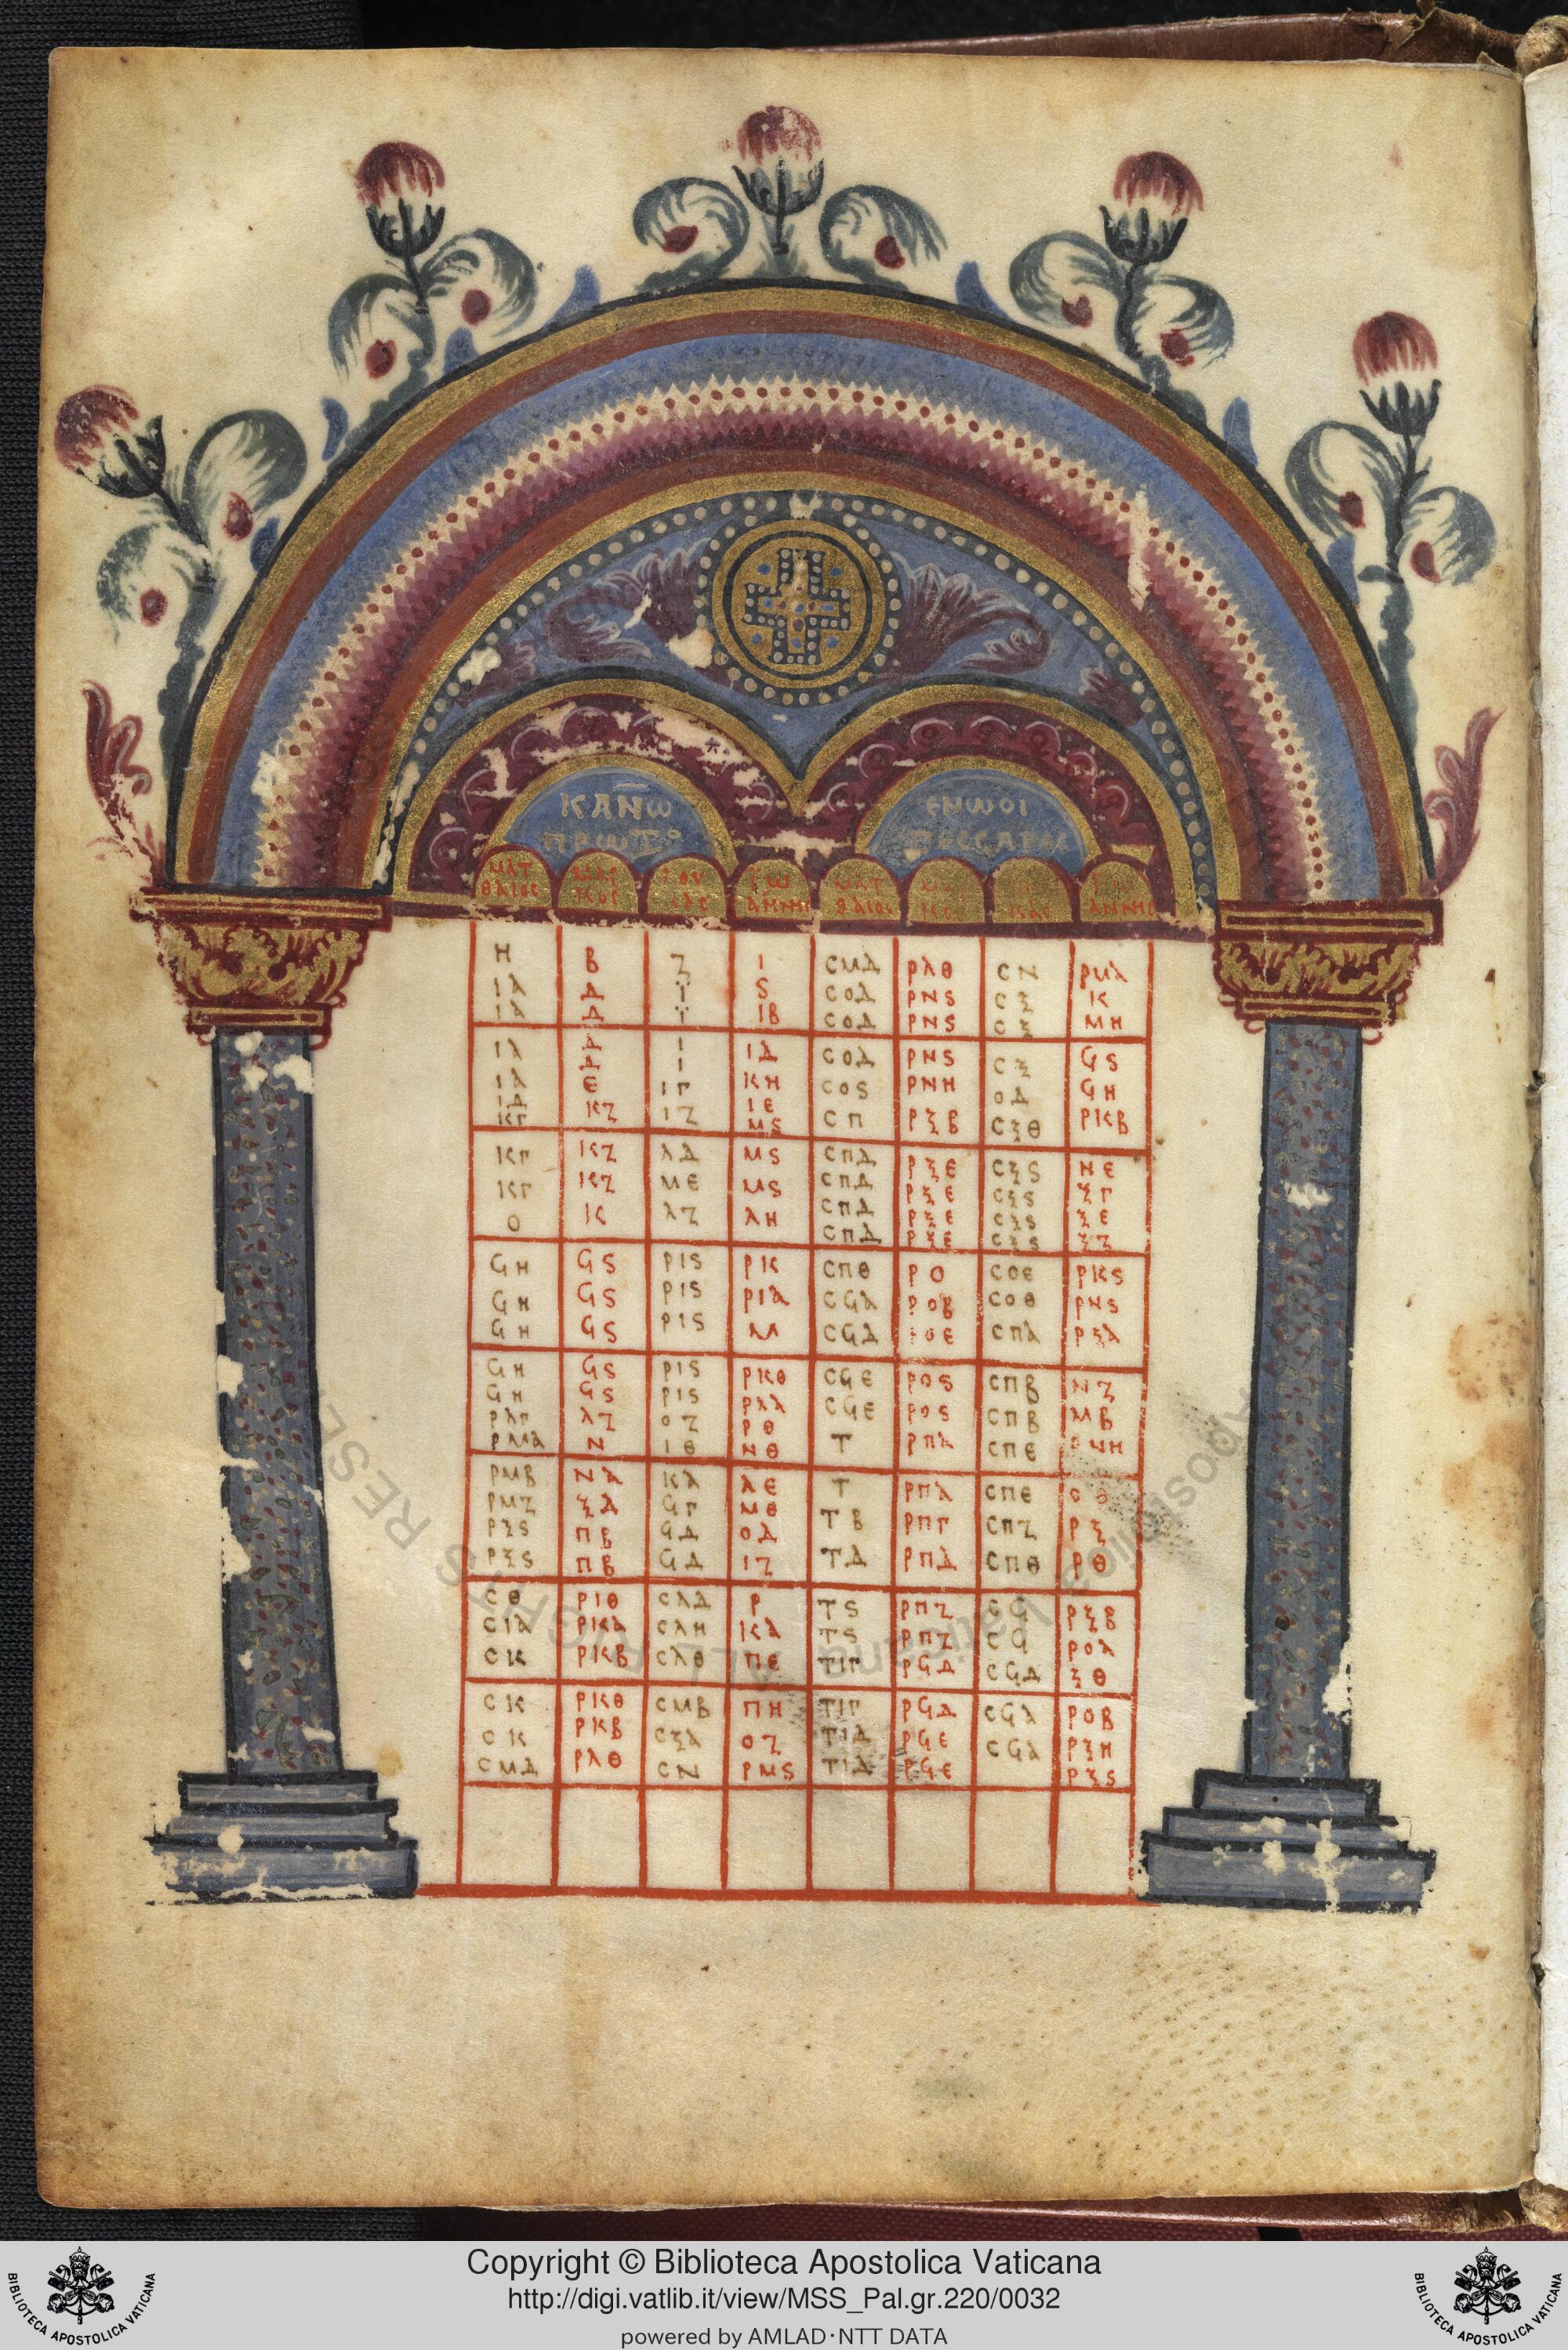 ΚΑΝΩ ΕΝΩΟΙ
ΠΡΩΤΟ ΤΕϹϹΑΡΕϹ
ΜΑΤ ΜΑΡ ΛΟΥ ΙΩ ΜΑΤ
ΘΑΙΟϹ ΚΟϹ ΚΑϹ ΑΝΝΗϹ ΘΑΙΟϹ ΚΟϹ ΚΑϹ ΑΝΝΗϹ
Η Β Ζ Ι ϹΜΔ ΡΛΘ ϹΝ ΡΜΑ
ΙΑ Δ Ϊ Ϛ ϹΟΔ ΡΝϚ ϹΞ Κ
ΙΑ Δ Ϊ ΙΒ ϹΟΔ ΡΝϚ ϹΞ ΜΗ
ΙΑ Δ Ι ΙΔ ϹΟΔ ΡΝϚ ϹΞ ϤϚ
ΙΑ Δ Ι ΚΗ ϹΟϚ ΡΝΗ ΟΔ ϤΗ
ΙΔ Ε ΙΓ ΙΕ ϹΠ ΡΞΒ ϹΞΘ ΡΚΒ
ΚΓ ΚΖ ΙΖ ΜϚ
ΚΓ ΚΖ ΛΔ ΜϚ ϹΠΔ ΡΞΕ ϹΞϚ ΝΕ
ΚΓ ΚΖ ΜΕ ΜϚ ϹΠΔ ΡΞΕ ϹΞϚ ΞΓ
Ο Κ ΛΖ ΛΗ ϹΠΔ ΡΞΕ ϹΞϚ ΞΕ
ϹΠΔ ΡΞΕ ϹΞϚ ΞΖ
ϤΗ ϤϚ ΡΙϚ ΡΚ ϹΠΘ ΡΟ ϹΟΕ ΡΚϚ
ϤΗ ϤϚ ΡΙϚ ΡΙΑ ϹϤΑ ΡΟΒ ϹΟΘ ΡΝϚ
ϤΗ ϤϚ ΡΙϚ Μ ϹϤΔ ΡΟΕ ϹΠΑ ΡΞΑ
ϤΗ ϤϚ ΡΙϚ ΡΚΘ ϹϤΕ ΡΟϚ ϹΠΒ ΝΖ
ϤΗ ϤϚ ΡΙϚ ΡΛΑ ϹϤΕ ΡΟϚ ϹΠΒ ΜΒ
ΡΛΓ ΛΖ ΟΖ ΡΘ Τ ΡΠΑ ϹΠΕ ΡΝΗ
ΡΜΑ Ν ΙΘ ΝΘ
ΡΜΒ ΝΑ ΚΑ ΛΕ Τ ΡΠΑ ϹΠΕ ΟΘ
ΡΜΖ ΞΔ ϤΓ ΜΘ ΤΒ ΡΠΓ ϹΠΖ ΡΞ
ΡΞϚ ΠΒ ϤΔ ΟΔ ΤΔ ΡΠΔ ϹΠΘ ΡΘ
ΡΞϚ ΠΒ ϤΔ ΙΖ
ϹΘ ΡΙΘ ϹΛΔ Ρ ΤϚ ΡΠΖ ϹϤ ΡΞΒ
ϹΙΑ ΡΚΑ ϹΛΗ ΚΑ ΤϚ ΡΠΖ ϹϤ ΡΟΑ
ϹΚ ΡΚΒ ϹΛΘ ΠΕ ΤΙΓ ΡϤΔ ϹϤΔ ΞΘ
ϹΚ ΡΚΘ ϹΜΒ ΠΗ ΤΙΓ ΡϤΔ ϹϤΑ ΡΟΒ
ϹΚ ΡΚΒ ϹΞΑ ΟΖ ΤΙΔ ΡϤΕ ϹϤΑ ΡΞΗ
ϹΜΔ ΡΛΘ ϹΝ ΡΜϚ ΤΙΔ ΡϤΕ ΡΞϚ
Copyright © Biblioteca Apostolica Vaticana
http://digi.vatlib.it/view/MSS_Pal.gr.220/0032
powered by AMLAD·NTT DATA
BIBLIOTECA APOSTOLICA VATICANA
BIBLIOTECA APOSTOLICA VATICANA